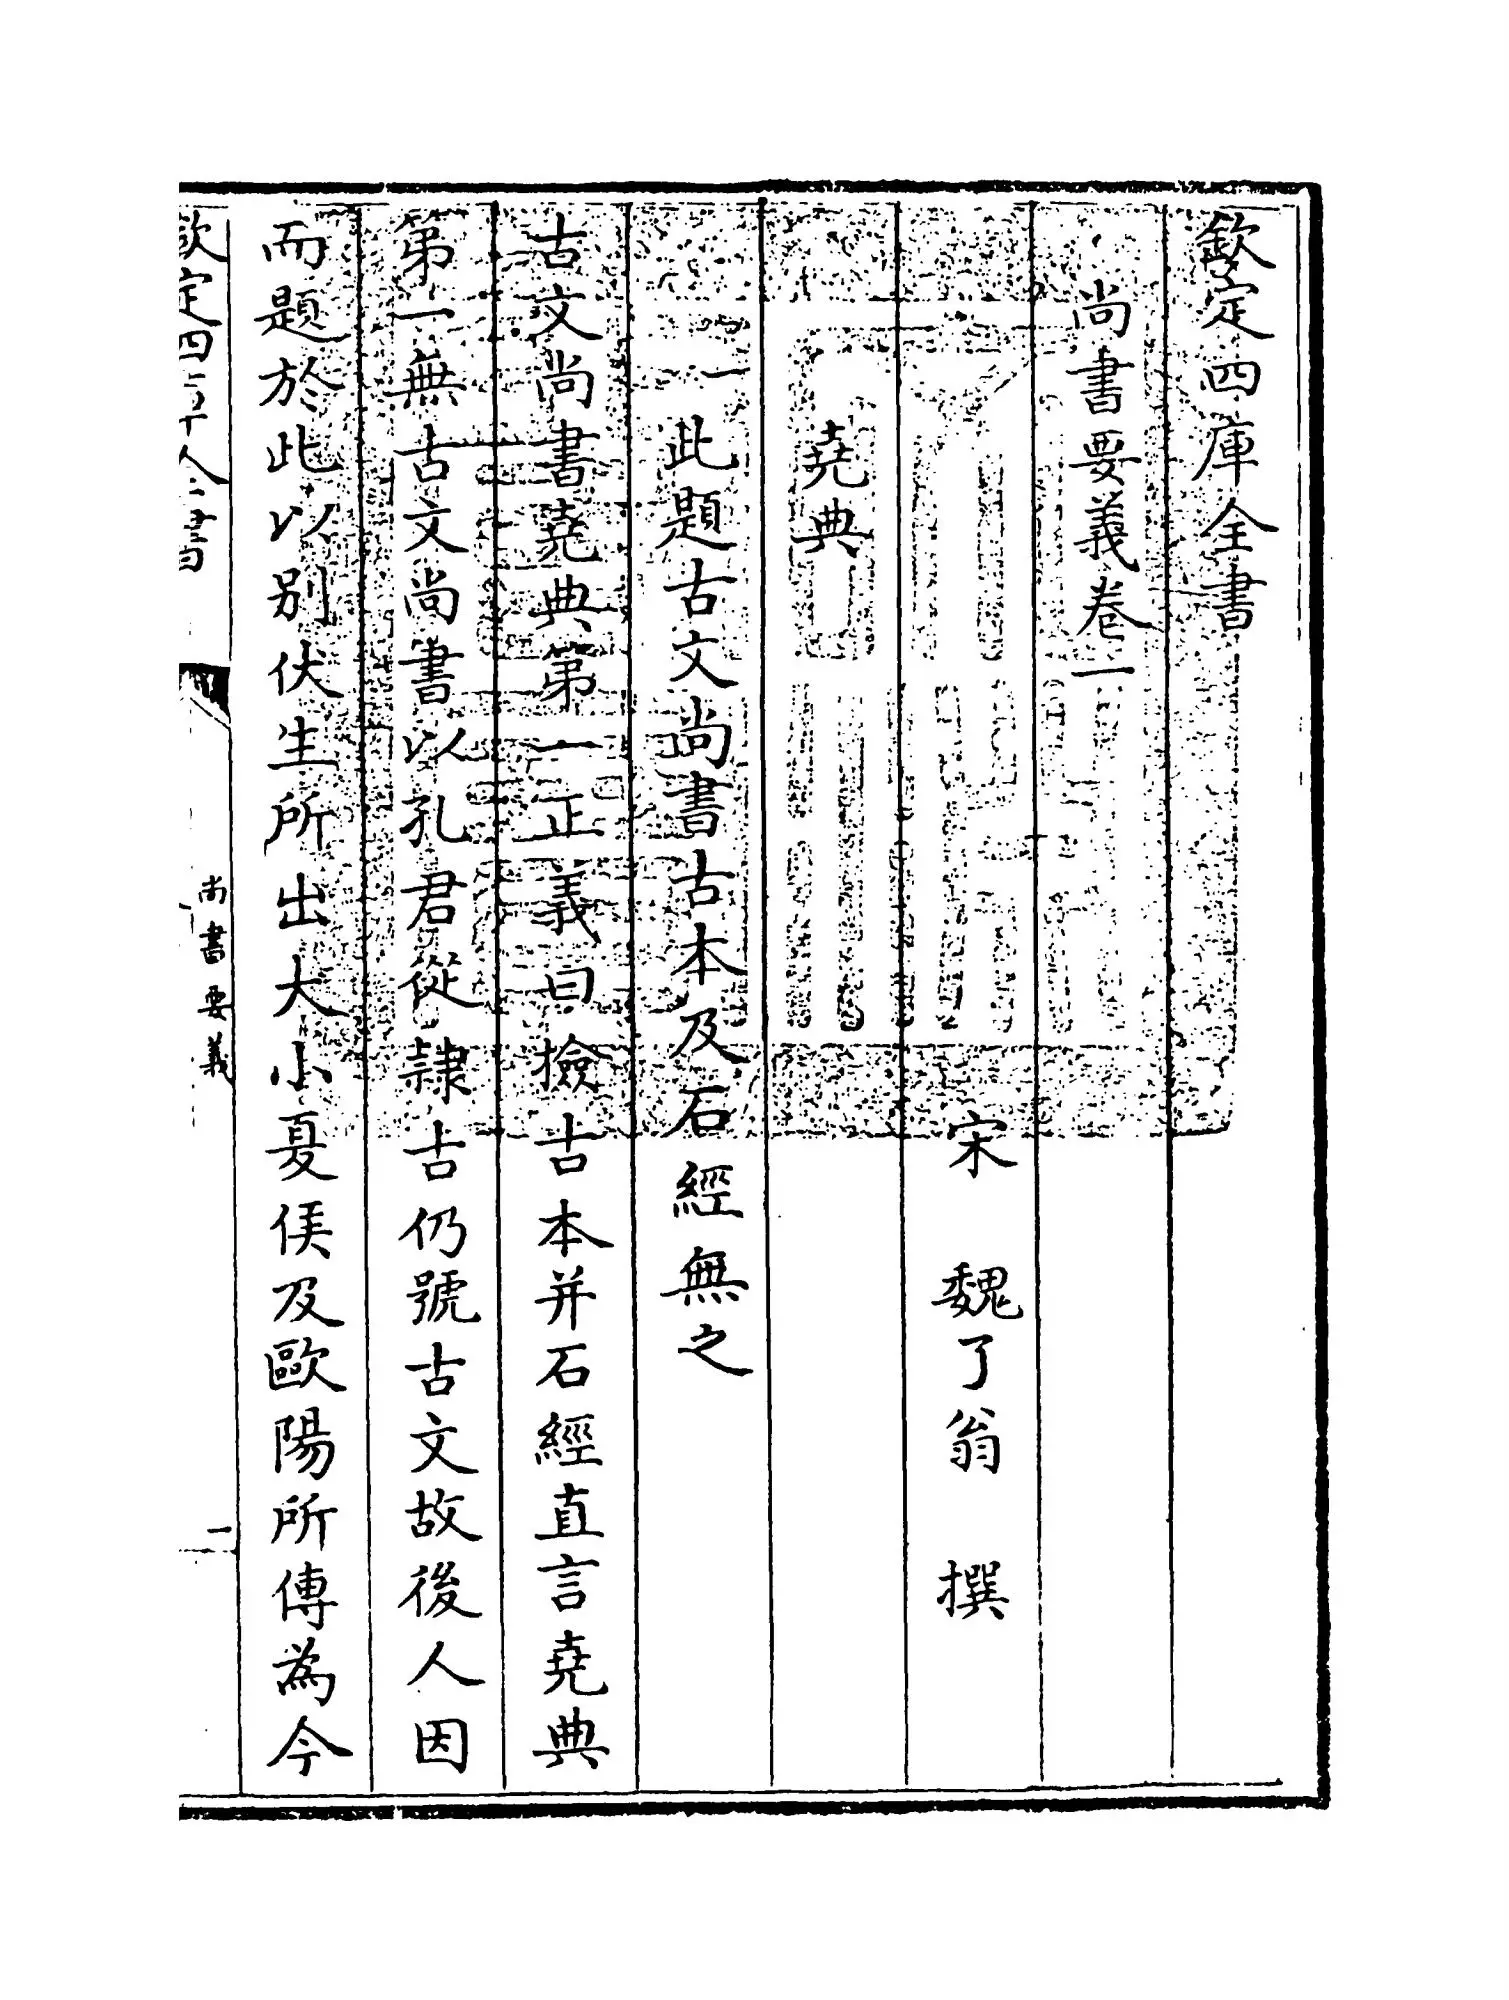 欽定四庫全書
尚書要義卷一
宋 魏了翁 撰
堯典
一此題古文尚書古本及石經無之
古文尚書堯典第一正義曰檢古本并石經直言堯典
第一無古文尚書以孔君從隸古仍號古文故後人因
而題於此以别伏生所出大小夏侯及歐陽所傳為今
欽定四庫全書
尚書要義
一